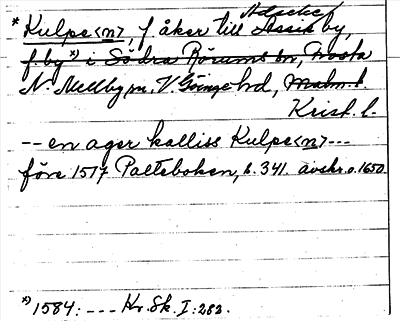 Adseke
* Kulpe<n>, f åker till Assik by,
f. by *) i Södra Rörums sn, Frosta
N. Mellby sn. V. Göinge hd, Malm. l.
Krist. l.
-- en ager kalliss Kulpe<n> ---
före 1517 Palteboken, s. 341. avskr. o. 1650.
*) 1584: --- Kr. Sk. I: 282.